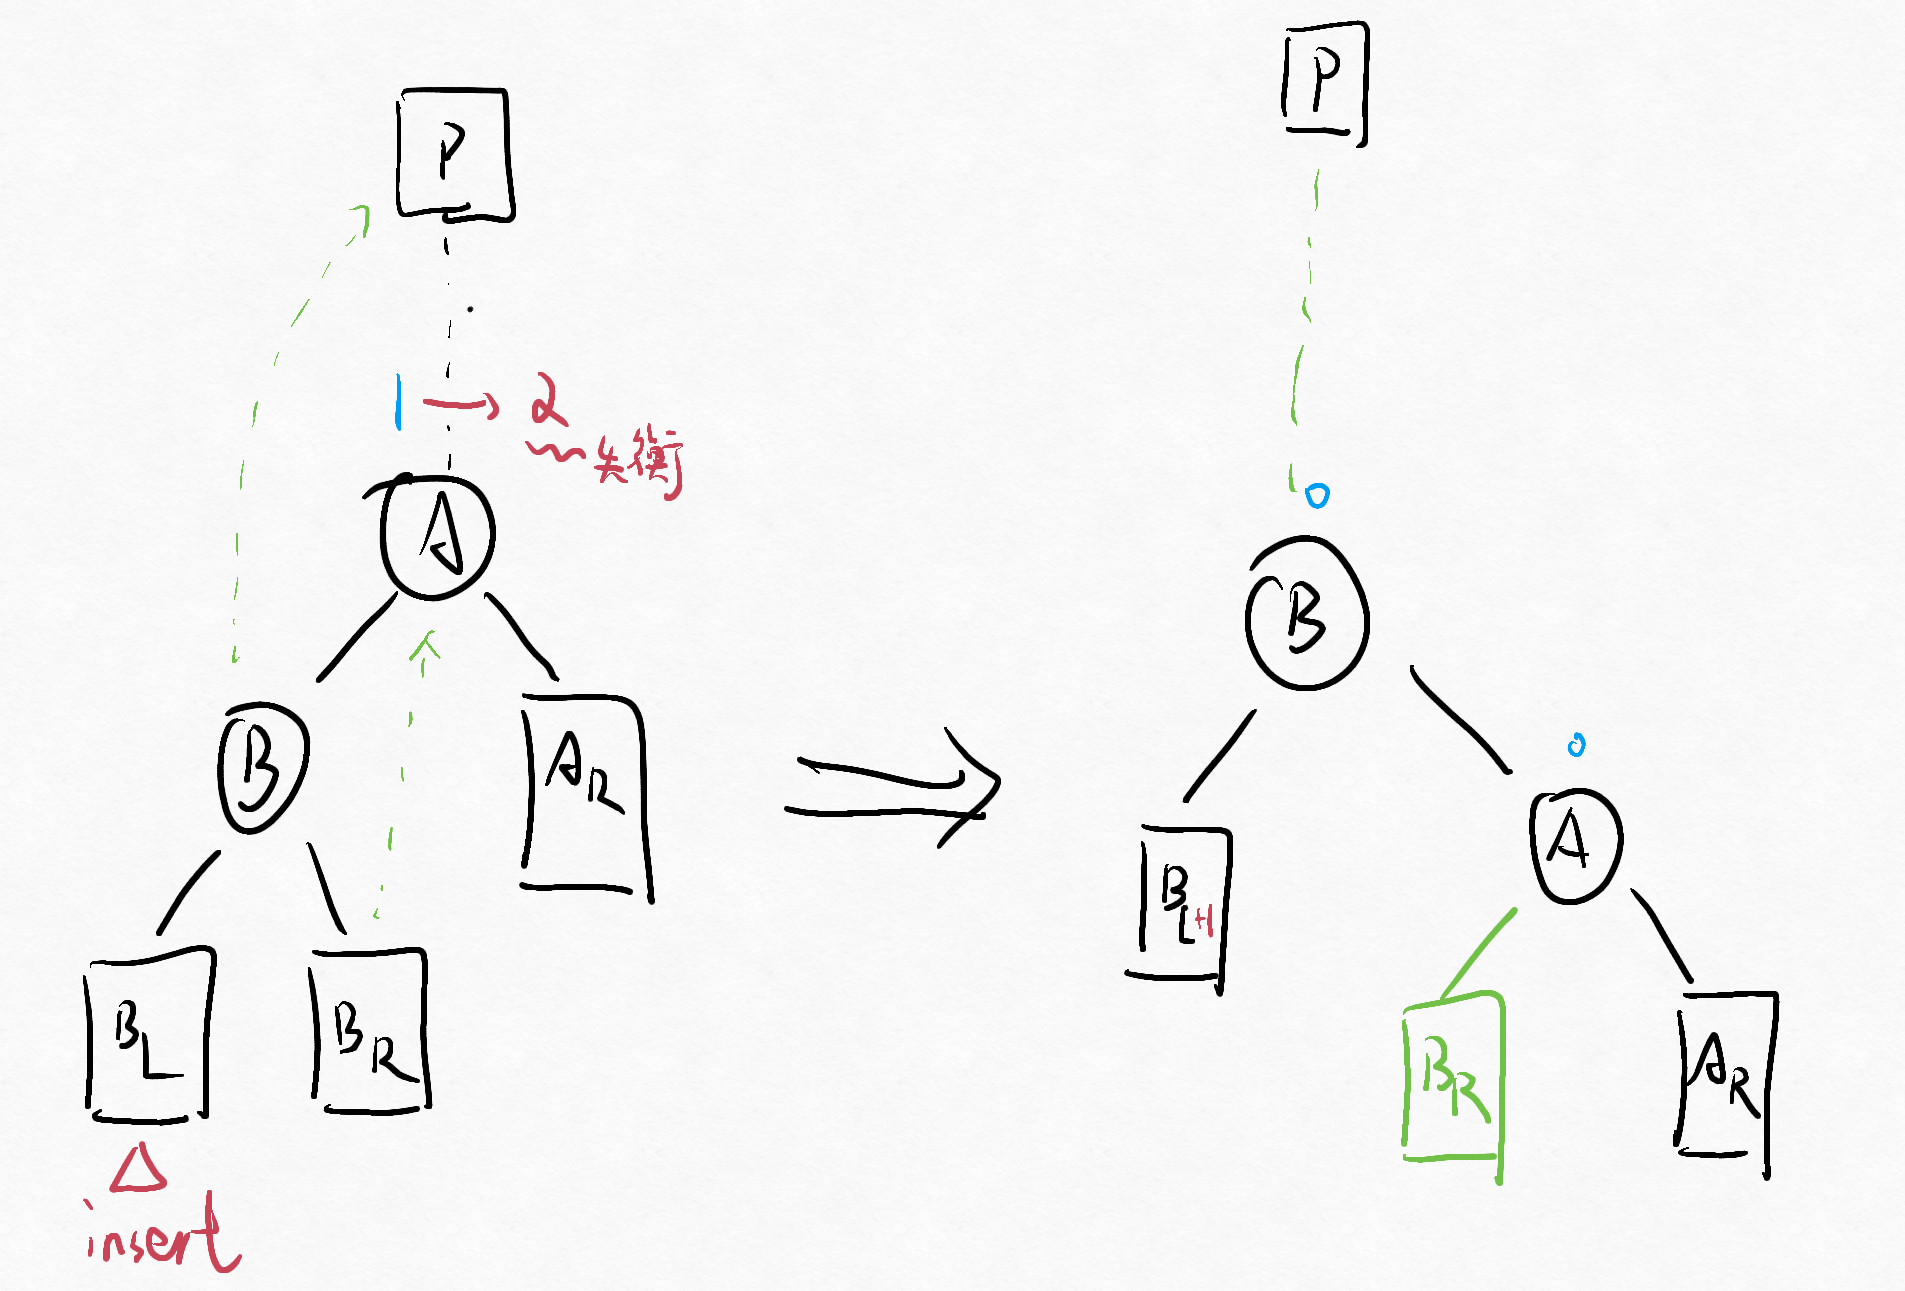 P
1 → 2
失衡
A
B
A_R
B_L
B_R
insert
P
0
B
0
A
B_L+1
B_R
A_R